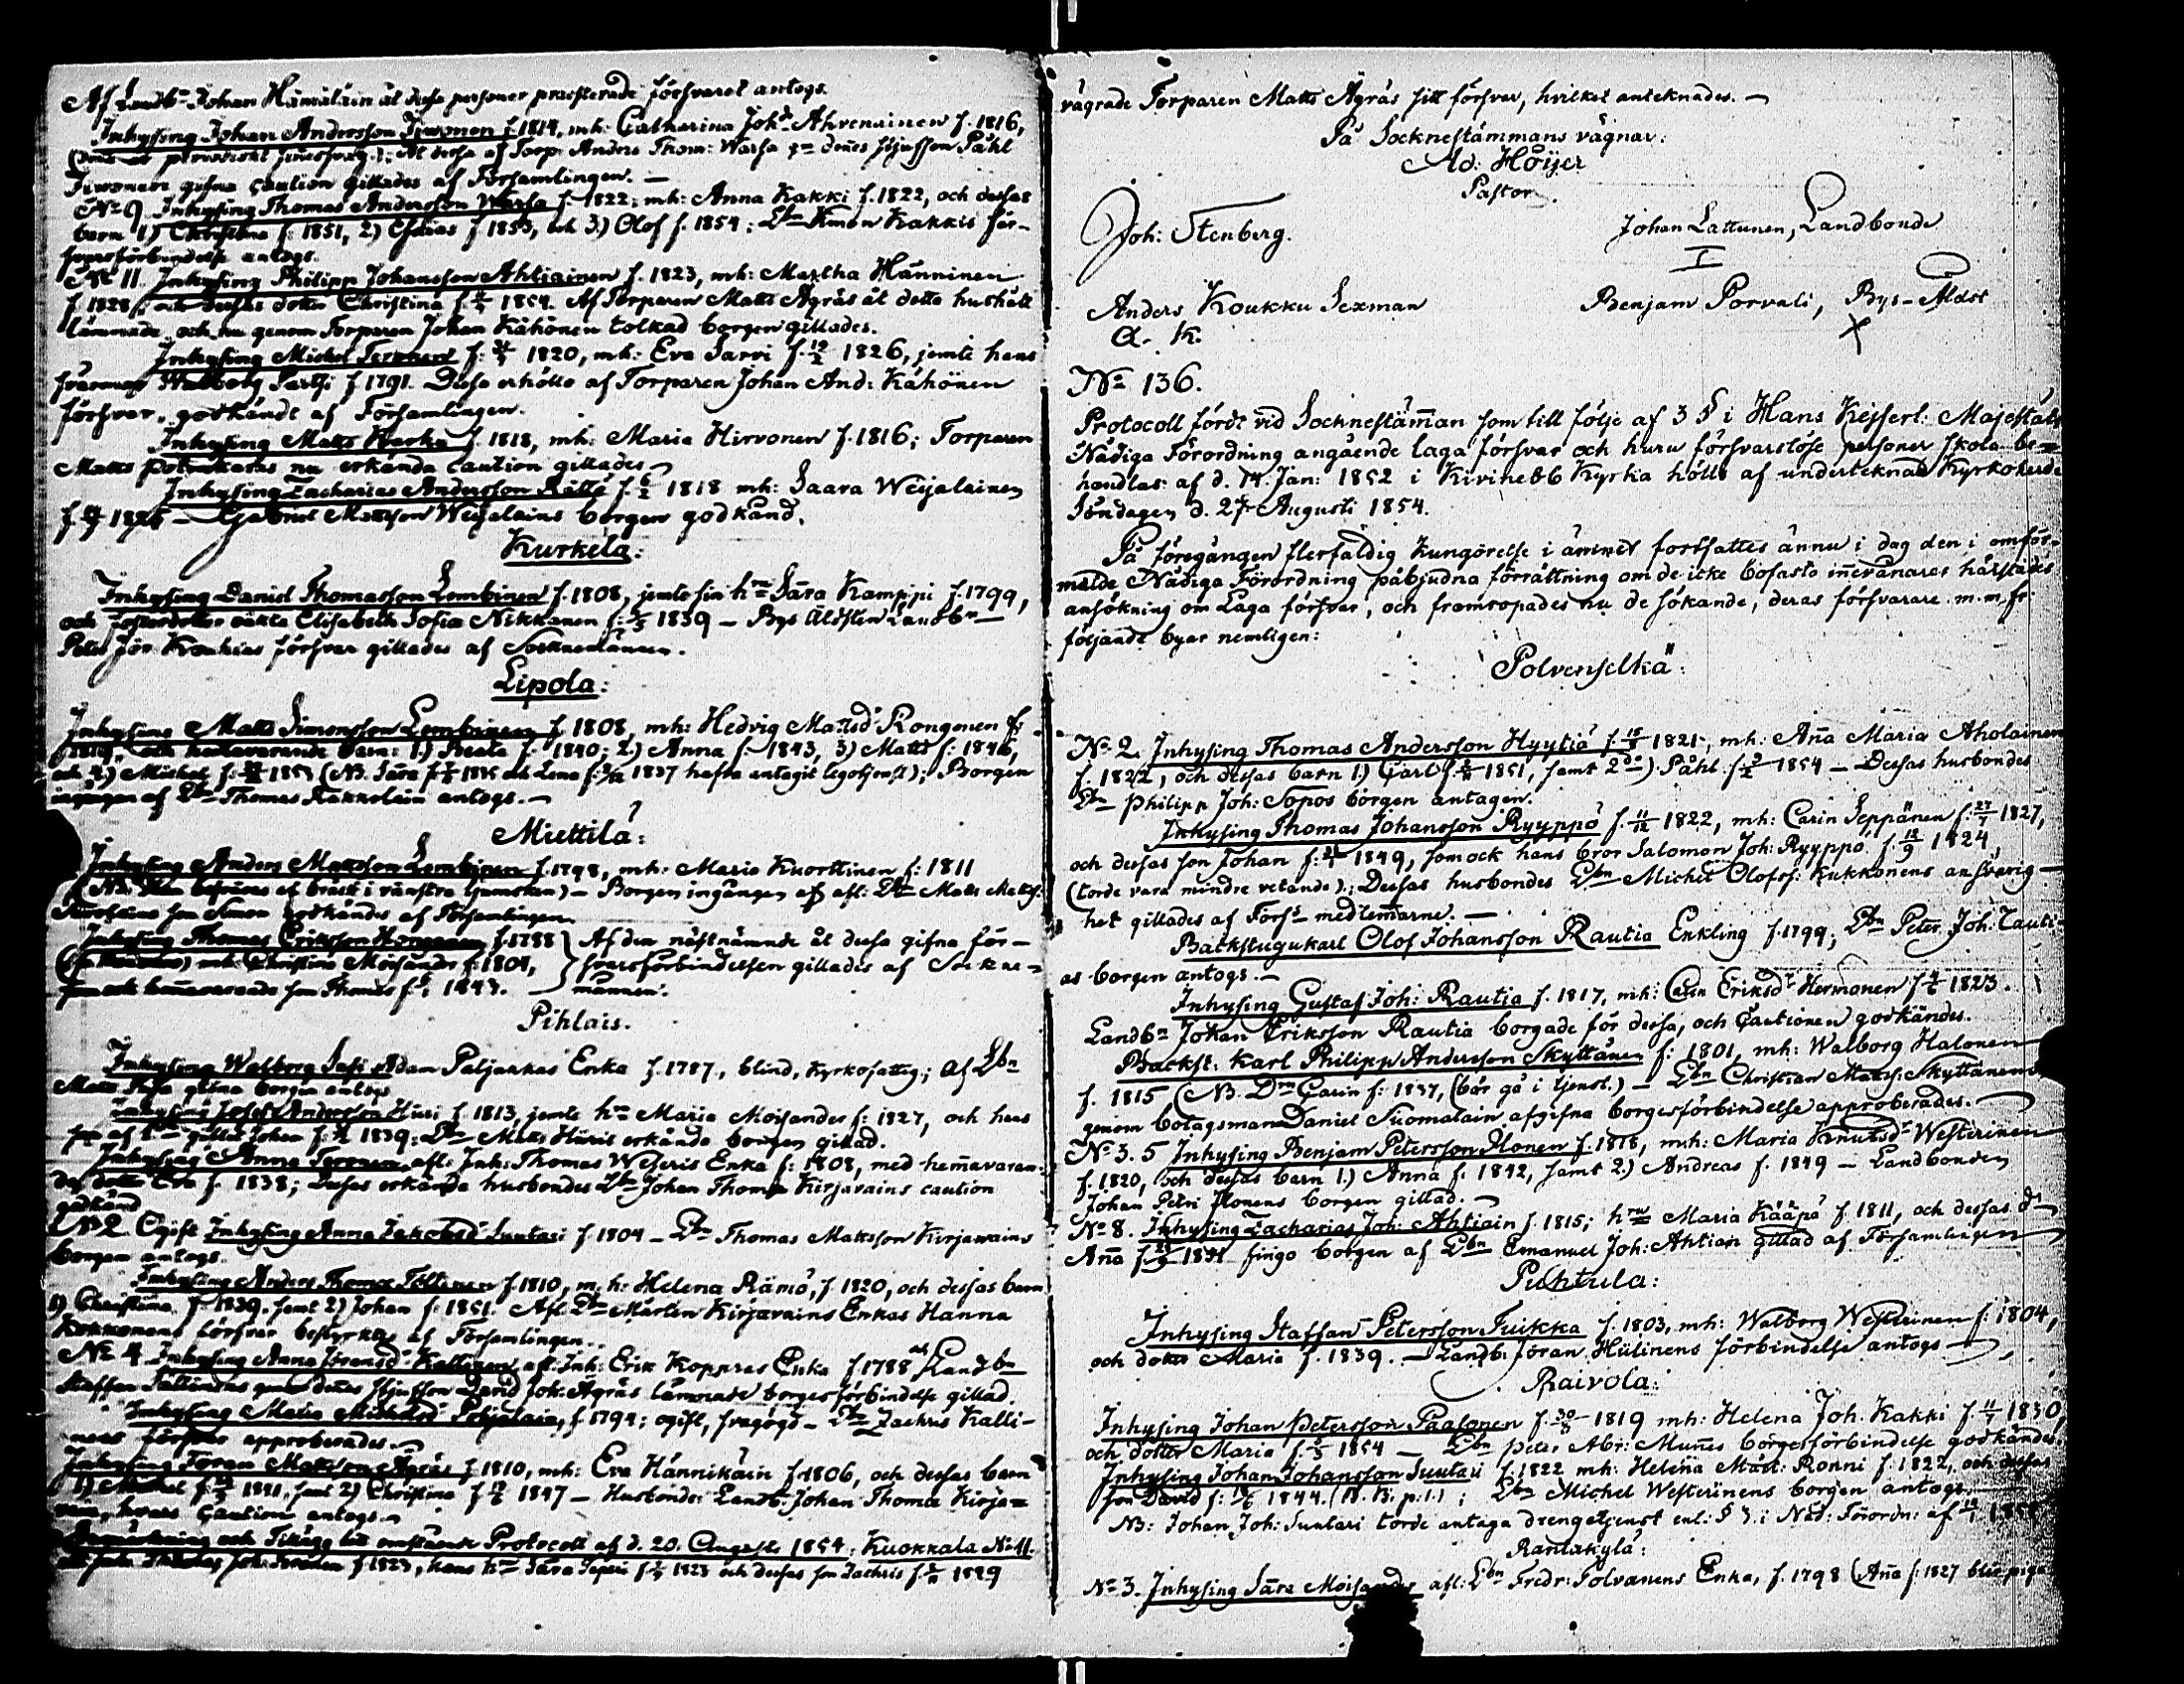 Af Landbn Johan Hämäläin åt dessa personer præsterade försvaret antogs.
Inhysing Johan Andersson Iivonen f. 1814, mh: Catharina Johsdr Ahvenainen f. 1816,
åt dessa af Torp. Anders Thom: Warsa gm dennes Påhl
Iivonen gifna caution gillades af Församlingen. —
No 9 Inhysing Thomas Andersson Warsa f. 1822; mh: Anna Kakki f. 1822, och dessas
barn 1.) Christina f: 1851, 2) Esaias f 1853, och 3.) Olof f. 1854; Lbn Simon Kakkis för-
svarsförbindelse antogs.
No 11. Inhysing Philipp Johansson Ahtiainen f. 1823, mh: Martha Hänninen
f. 1828, och dessas dotter Christina f. 1854. Af Torparen Matts Ägräs åt detta hushåll
lämnade, och nu genom Torparen Johan Kähönen tolkad borgen gillades.
Inhysing Michel Teronen f: 1820, mh: Eva Sarvi f. 19/2 1826, jemte hans
svärmor Walborg f. 1791. Dessa erhöllo af Torparen Johan And: Kähönen
försvar, godkändt af Församlingen.
Inhysing Matts f. 1818, mh: Maria Hirvonen f. 1816; Torparen
Matts nu erkända caution gillades
Inhysing Zacharias Andersson Rättö f. 1818 mh: Saara Weijalainen
f. — Gabriel Mattsson Weijalains borgen godkänd.
Kurkela:
Inhysing Daniel Thomasson Lembinen f. 1808, jemte sin hru Sara Kamppi f. 1799,
och fosterdotter oäkta Elisabeth Sofia Nikkanen f: 1839 — Bys Åldsten Landbn
Peter Jör. Koukkus försvar gillades af Socknemännen.
Lipola:
Inhysing Matts Simonsson Lembinen f. 1808, mh: Hedvig Mattsdr Rongonen f:
1819, och hemavarande barn: 1) Beata f. 1840; 2) Anna f. 1843, 3) Matts f: 1846,
och 4) Michel f: 1853 (NB. Sara f. och Lena f: 1837 hafva antagit legotjenst); Borgen
ingången af Lbn Thomas antogs. —
Miettilä:
Inhysing Anders Mattsson Lembinen f. 1798, mh: Maria Kuorttinen f: 1811
(NB. besväras af bråck i vänstra ljumsken) — Borgen ingången af afl: Lbn Matts Matss:
son Simon godkändes af Församlingen.
Inhysing Thomas Eriksson f. 1788 } Af den nästnämnde åt dessa gifna för-
mh: Christina Moisander f: 1801, } svarsförbindelsen gillades af Sockne-
som ock hemavarande son Thomas f. 1843. — männen.
Pihlais.
Inhysing Walborg Adam Paljakkas Enka f. 1787, blind, kyrkofattig; Af Lbn
Matts gifna borgen antogs
Inhysing Josef Andersson Hüri f. 1813, jemte hru Maria Moisander f: 1827, och hans
son af gifte Johan f: 1839; Lbn Matts Hüris erkände borgen gillad.
Inhysing Anna Teronen afl: Inh: Thomas Weseris Enka f: 1808, med hemavaran-
des dotter Eva f. 1838; Dessas erkände husbondes Lbn Johan Thoms Kirjavains caution
godkänd
No 2. Ogift Inhysing Anna Jakobsdr Suutari f. 1804 — Lbn Thomas Matsson Kirjavains
borgen antogs.
Inhysing Anders Thomss Töllinen f. 1810, m. h: Helena Rämö, f. 1820, och dessas barn
1) Christina f 1839, samt 2) Johan f: 1851. Afl: Lbn Mårten Kirjavains Enkas Hanna
Kokkonens försvar bestyrktes af Församlingen.
No 4 Inhysing Anna Jöransdr Kallinen afl: Inh: Erik Koppras Enka f. 1788 af Landbn
Staffan gm dennes David Joh: Ägräs lämnade borgesförbindelse gillad.
Inhysing Maria Michelsdr Pohjalain, f. 1794; ogift, — Lbn Zachris Kalli-
nens försvar approberades.
Inhysing Jöran Matsson Ägräs f. 1810, mh: Eva Hännikäin f. 1806, och dessas barn
1) Michel f 1841, samt 2) Christina f 1847 — Husbonde: Landb: Johan Thoms Kirja-
vain, hvars Caution antogs.
Anmärkning och Tillägg till omstående Protocoll af d. 20. Augusti 1854; Kuokkala No 11.
Inh. Thomas Joh: f 1823, hans hru Sara f. 1823 och dessas son Zachris f. 1849
vägrade Torparen Matts Ägräs sitt försvar, hvilket anteknades. —
På Socknestämmans vägnar:
Ad: Höijer
Pastor.
Joh: Stenberg.
Johan Lattunen, Landbonde
I
Anders Koukku Sexman
A. K.
Benjam Porvali, Bys-Äldst
X
No 136.
Protocoll fördt vid Socknestämman som till följe af 3 § i Hans Kejserl: Majestäts
Nådiga Förordning angående laga försvar och huru försvarslöse personer skola be-
handlas af d. 14. Jan: 1852 i Kivinebb Kyrka hölls af undertecknad Kyrkoherde
Söndagen d. 27 Augusti 1854.
På föregången flerfaldig kungörelse i ämnet fortsattes ännu i dag den i omför-
mälde Nådiga Förordning påbjudna förrättning om de icke bofasta innevånares härstädes
ansökning om Laga försvar, och framropades nu de sökande, deras försvarare m.m. fr.
följande byar nemligen:
Polvenselkä:
No 2. Inhysing Thomas Andersson Hyytiä f. 1821, mh: Anna Maria Aholainen
f. 1822, och dessas barn 1.) Carl f. 1851, samt 2do) Påhl f. 1854 — Dessas husbondes
Lbn Philipp Joh: Sopos borgen antagen.
Inhysing Thomas Johansson Ryyppö f. 11/12 1822, mh: Carin Seppänen f. 27/7 1827,
och dessas son Johan f: 1849, som ock hans bror Salomon Joh: Ryyppö f. 1824,
(torde vara mindre vetande).; Dessas husbondes Lbn Michel Olofss: Kukkonens ansvarig-
het gillades af Förss medlemmarne. —
Backstugukarl Olof Johansson Rautia Enkling f. 1799; Lbn Peter Joh: Tauti-
as borgen antogs. —
Inhysing Gustaf Joh: Rautia f. 1817, mh: Carin Eriksdr Hermonen f. 1823.
Landbn Johan Eriksson Rautia borgade för dessa, och Cautionen godkändes.
Backst: Karl Philipp Andersson Skyttänen f: 1801, mh: Walborg Halonen
f. 1815 (NB. Drn Carin f: 1837, (bör gå i tjenst.) — Lbn Christian Matss: Skyttänens
genom bolagsman Daniel Suomalain afgifna borgesförbindelse approberades.
No 3. 5 Inhysing Benjam Petersson Ilonen f. 1818, mh: Maria Knutsdr Westerinen
f. 1820, och dessas barn 1.) Anna f. 1842, samt 2.) Andreas f. 1849 — Landbonden
Johan Petri Ilonens borgen gillad.
No 8. Inhysing Zacharias Joh: Ahtiain f. 1815; hru Maria Kääpä f. 1811, och dessas dr
Anna f. fingo borgen af Lbn Emanuel Joh: Ahtian gillad af Församlingen
Puhtula:
Inhysing Staffan Petersson Tuikka f. 1803, mh: Walborg Westerinen f: 1804,
och dotter Maria f. 1839. — Landb. Jöran Hülinens förbindelse antogs
Raivola:
Inhysing Johan Petersson Paasonen f. 30/8 1819 mh: Helena Joh. Kakki f. 11/7 1830,
och dotter Maria f. 1854 — Lbn Peter Abr: Munnes borgesförbindelse godkändes.
Inhysing Johan Johansson Suutari f. 1822 mh: Helena Matt: Ronni f. 1822, och dessas
son David f: 1844. (N. B. p. 1.) ; Lbn Michel Westerinens borgen antogs.
NB: Johan Joh: Suutari torde antaga drengetjenst enl: § 3. i Nåd: Förordn: af
Rantakylä:
No 3. Inhysing Sara Moisander afl: Lbn Fredr: Polvanens Enka, f. 1798 (Anna f: 1827 blir piga